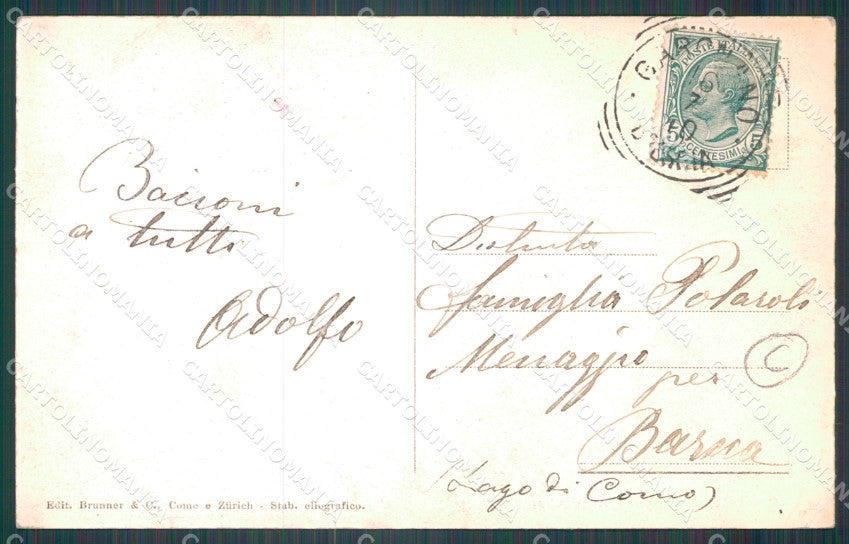 Bacioni
a tutti
Adolfo
Distinta
famiglia Polaroli
Menaggio
per
Barna
(Lago di Como)
C
POSTE ITALIANE
5 CENTESIMI 5
7
10
Edit. Brunner & C., Como e Zürich - Stab. eliografico.
CARTOLINOMANIA